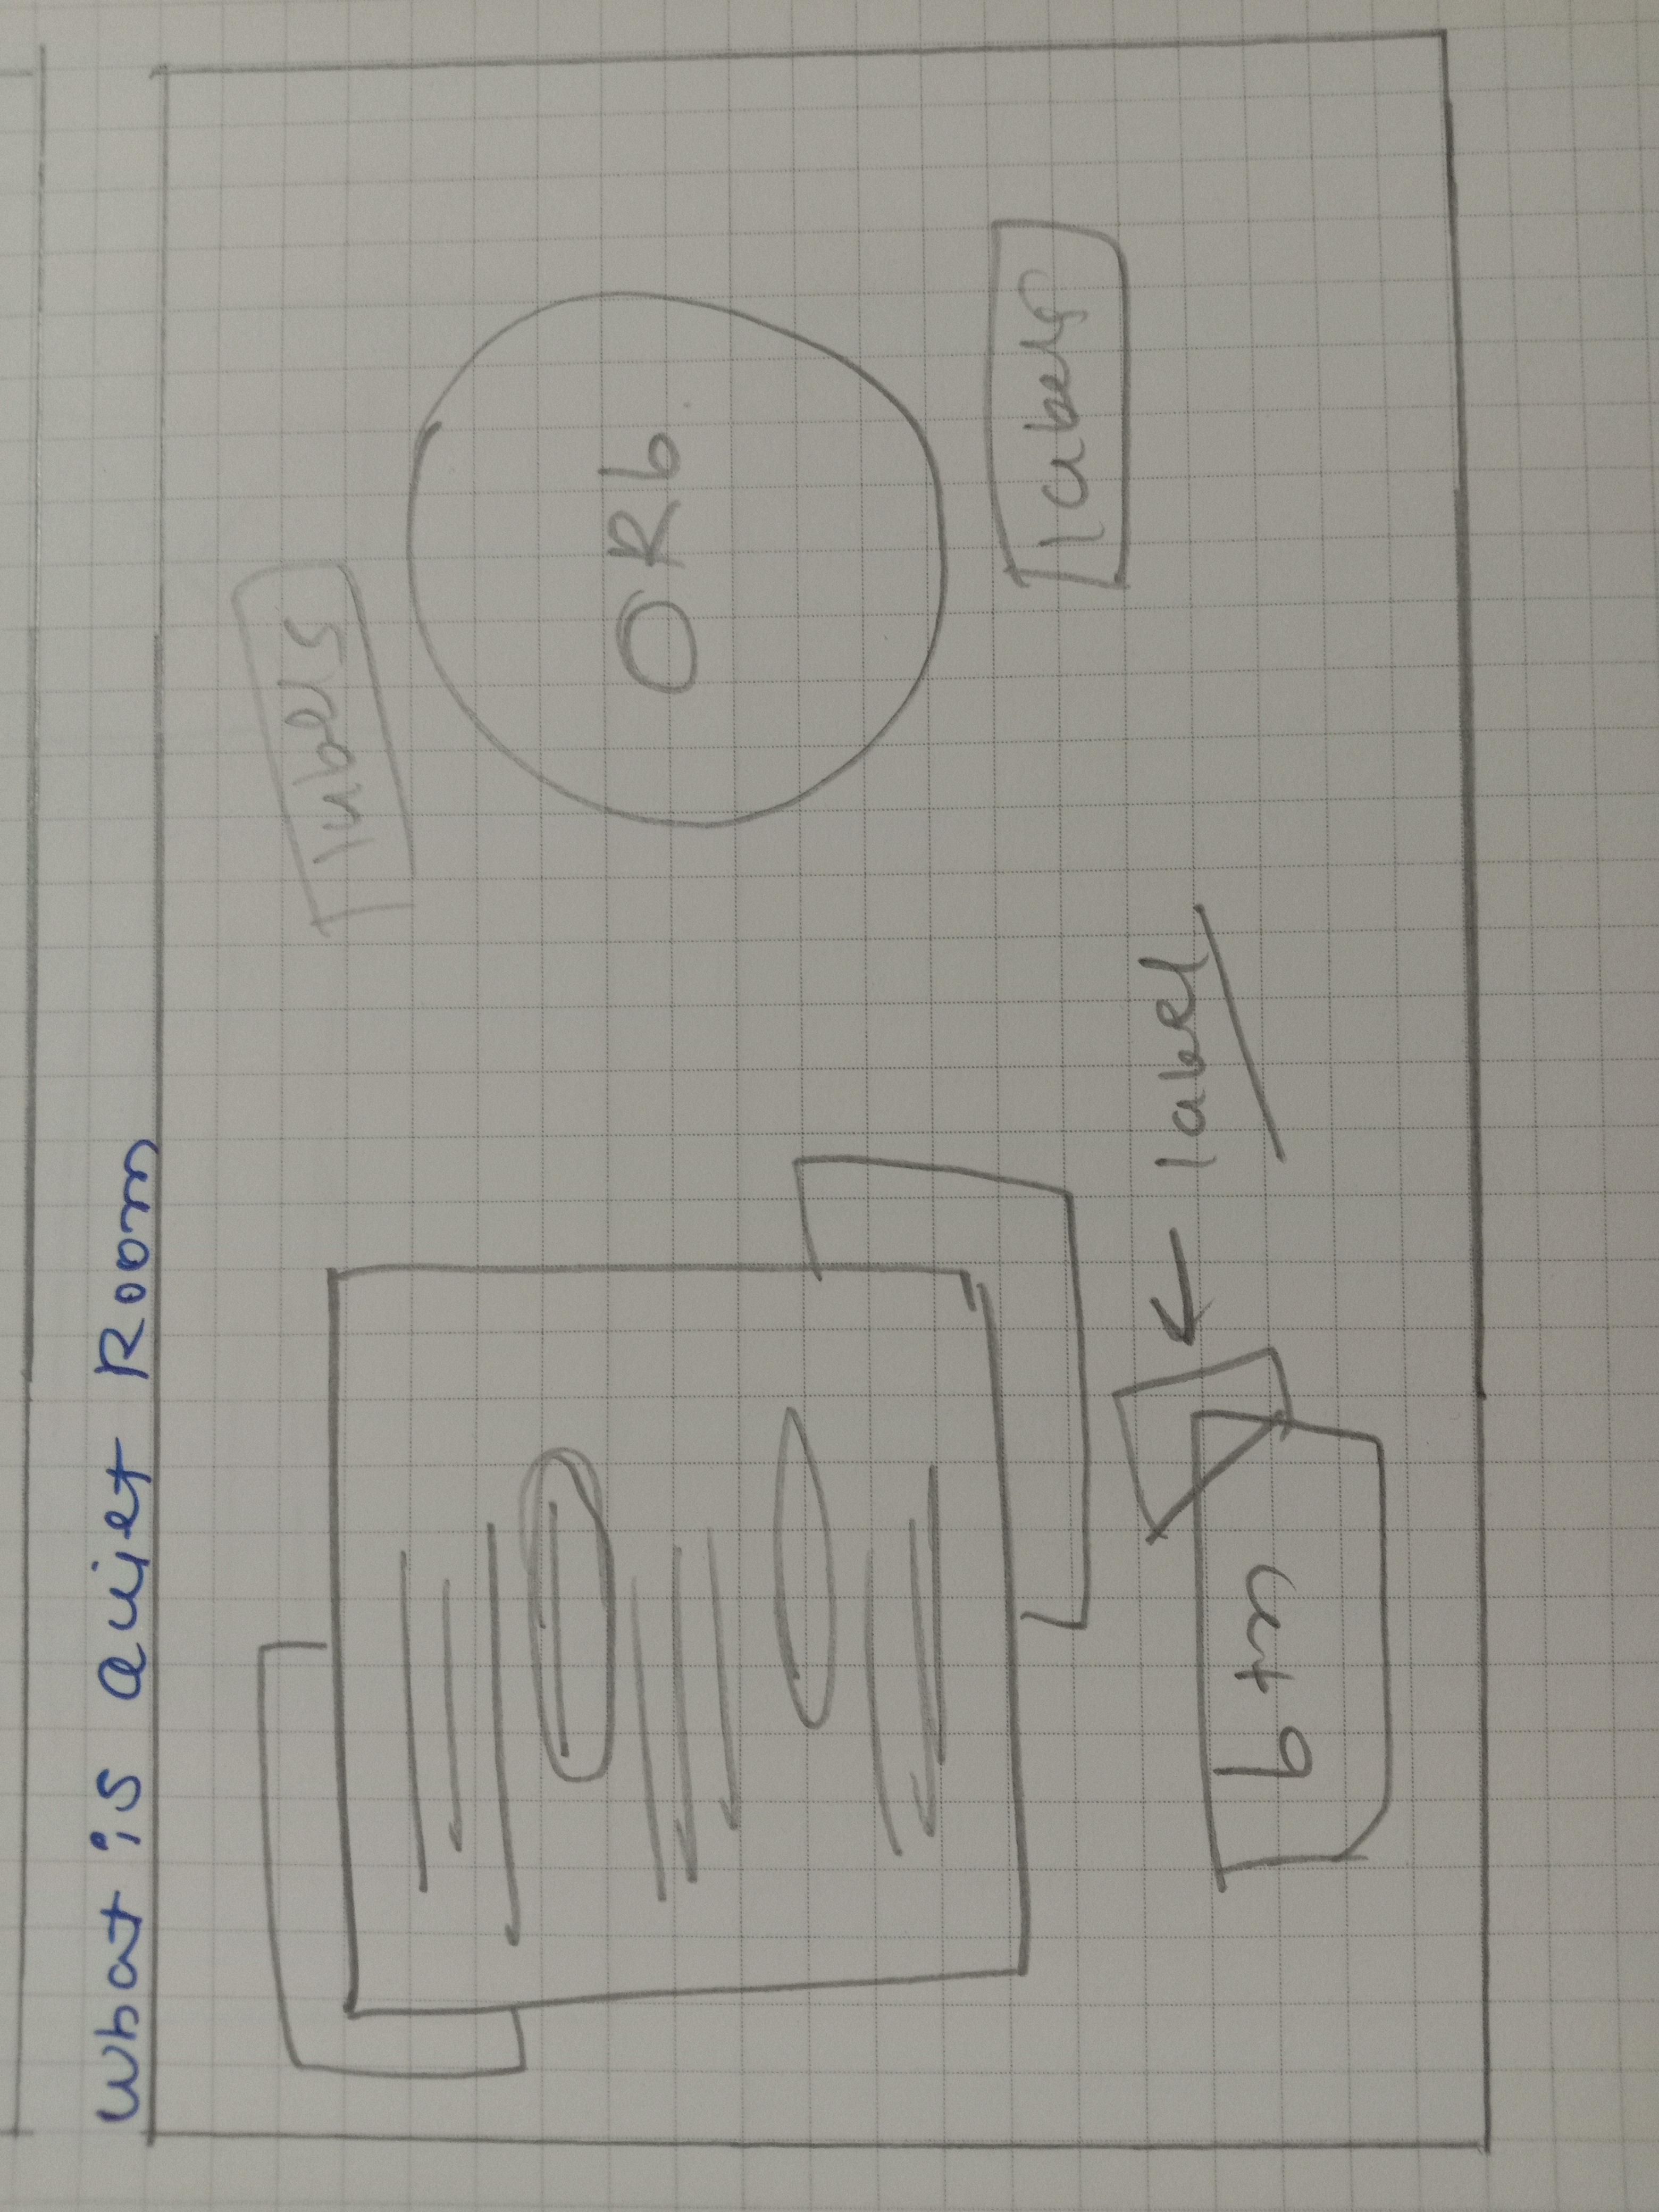 What is Quiet Room
labels
ORb
labels
label
btn